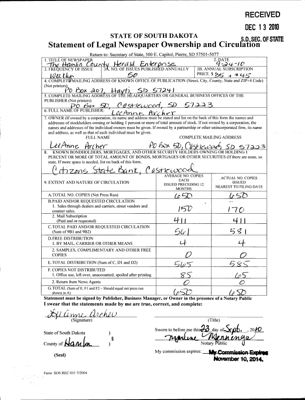 RECEIVED
DEC 13 2010
S.D. SEC. OF STATE
STATE OF SOUTH DAKOTA
Statement of Legal Newspaper Ownership and Circulation
Return to: Secretary of State, 500 E. Capitol, Pierre, SD 57501-5077
1. TITLE OF NEWSPAPER 2. DATE
The Hamlin County Herald Enterprise 9-24-10
3. FREQUENCY OF ISSUE 3A. NO. OF ISSUES PUBLISHED ANNUALLY 3B. ANNUAL SUBSCRIPTION
PRICE
4. COMPLETE MAILING ADDRESS OF KNOWN OFFICE OF PUBLICATION (Street, City, County, State and ZIP+4 Code)
(Not printers)
PO Box 207, Hayti, SD 57241
5. COMPLETE MAILING ADDRESS OF THE HEADQUARTERS OF GENERAL BUSINESS OFFICES OF THE
PUBLISHER (Not printer)
Castlewood, SD 57223
6. FULL NAME OF PUBLISHER:
LeeAnne Archer
7. OWNER (If owned by a corporation, its name and address must be stated and list on the back of this form the names and
addresses of stockholders owning or holding 1 percent or more of total amount of stock. If not owned by a corporation, the
names and addresses of the individual owners must be given. If owned by a partnership or other unincorporated firm, its name
and address, as well as that of each individual must be given.
FULL NAME COMPLETE MAILING ADDRESS
LeeAnne Archer Castlewood, SD 57223
8. KNOWN BONDHOLDERS, MORTGAGES, AND OTHER SECURITY HOLDERS OWNING OR HOLDING 1
PERCENT OR MORE OF TOTAL AMOUNT OF BONDS, MORTGAGES OR OTHER SECURITIES (If there are none, so
state. If more space is needed, list on back of this form.
Citizens State Bank, Castlewood
9. EXTENT AND NATURE OF CIRCULATION AVERAGE NO. COPIES EACH ISSUED PRECEDING 12 MONTHS ACTUAL NO. COPIES ISSUED NEAREST TO FILING DATE
A. TOTAL NO. COPIES (Net Press Run) 650 650
B. PAID AND/OR REQUESTED CIRCULATION
1. Sales through dealers and carriers, street vendors and
counter sales 150 170
2. Mail Subscription
(Paid and or requested) 411 411
C. TOTAL PAID AND/OR REQUESTED CIRCULATION
(Sum of 9B1 and 9B2) 561 581
D. FREE DISTRIBUTION
1. BY MAIL, CARRIER OR OTHER MEANS 4 4
2. SAMPLES, COMPLIMENTARY AND OTHER FREE
COPIES 0 0
E. TOTAL DISTRIBUTION (Sum of C, D1 and D2) 565 585
F. COPIES NOT DISTRIBUTED
1. Office use, left over, unaccounted, spoiled after printing 85 65
2. Return from News Agents 0 0
G. TOTAL (Sum of E, F1 and F2 - Should equal net press run
shown in A) 650 650
Statement must be signed by Publisher, Business Manager, or Owner in the presence of a Notary Public
I swear that the statements made by me are true, correct, and complete:
LeeAnne Archer
(Signature) (Title)
State of South Dakota )
County of Hamlin )
(Seal)
Sworn to before me this 23 day of Sept. 2010
Notary Public
My commission expires: My Commission Expires
November 10, 2014.